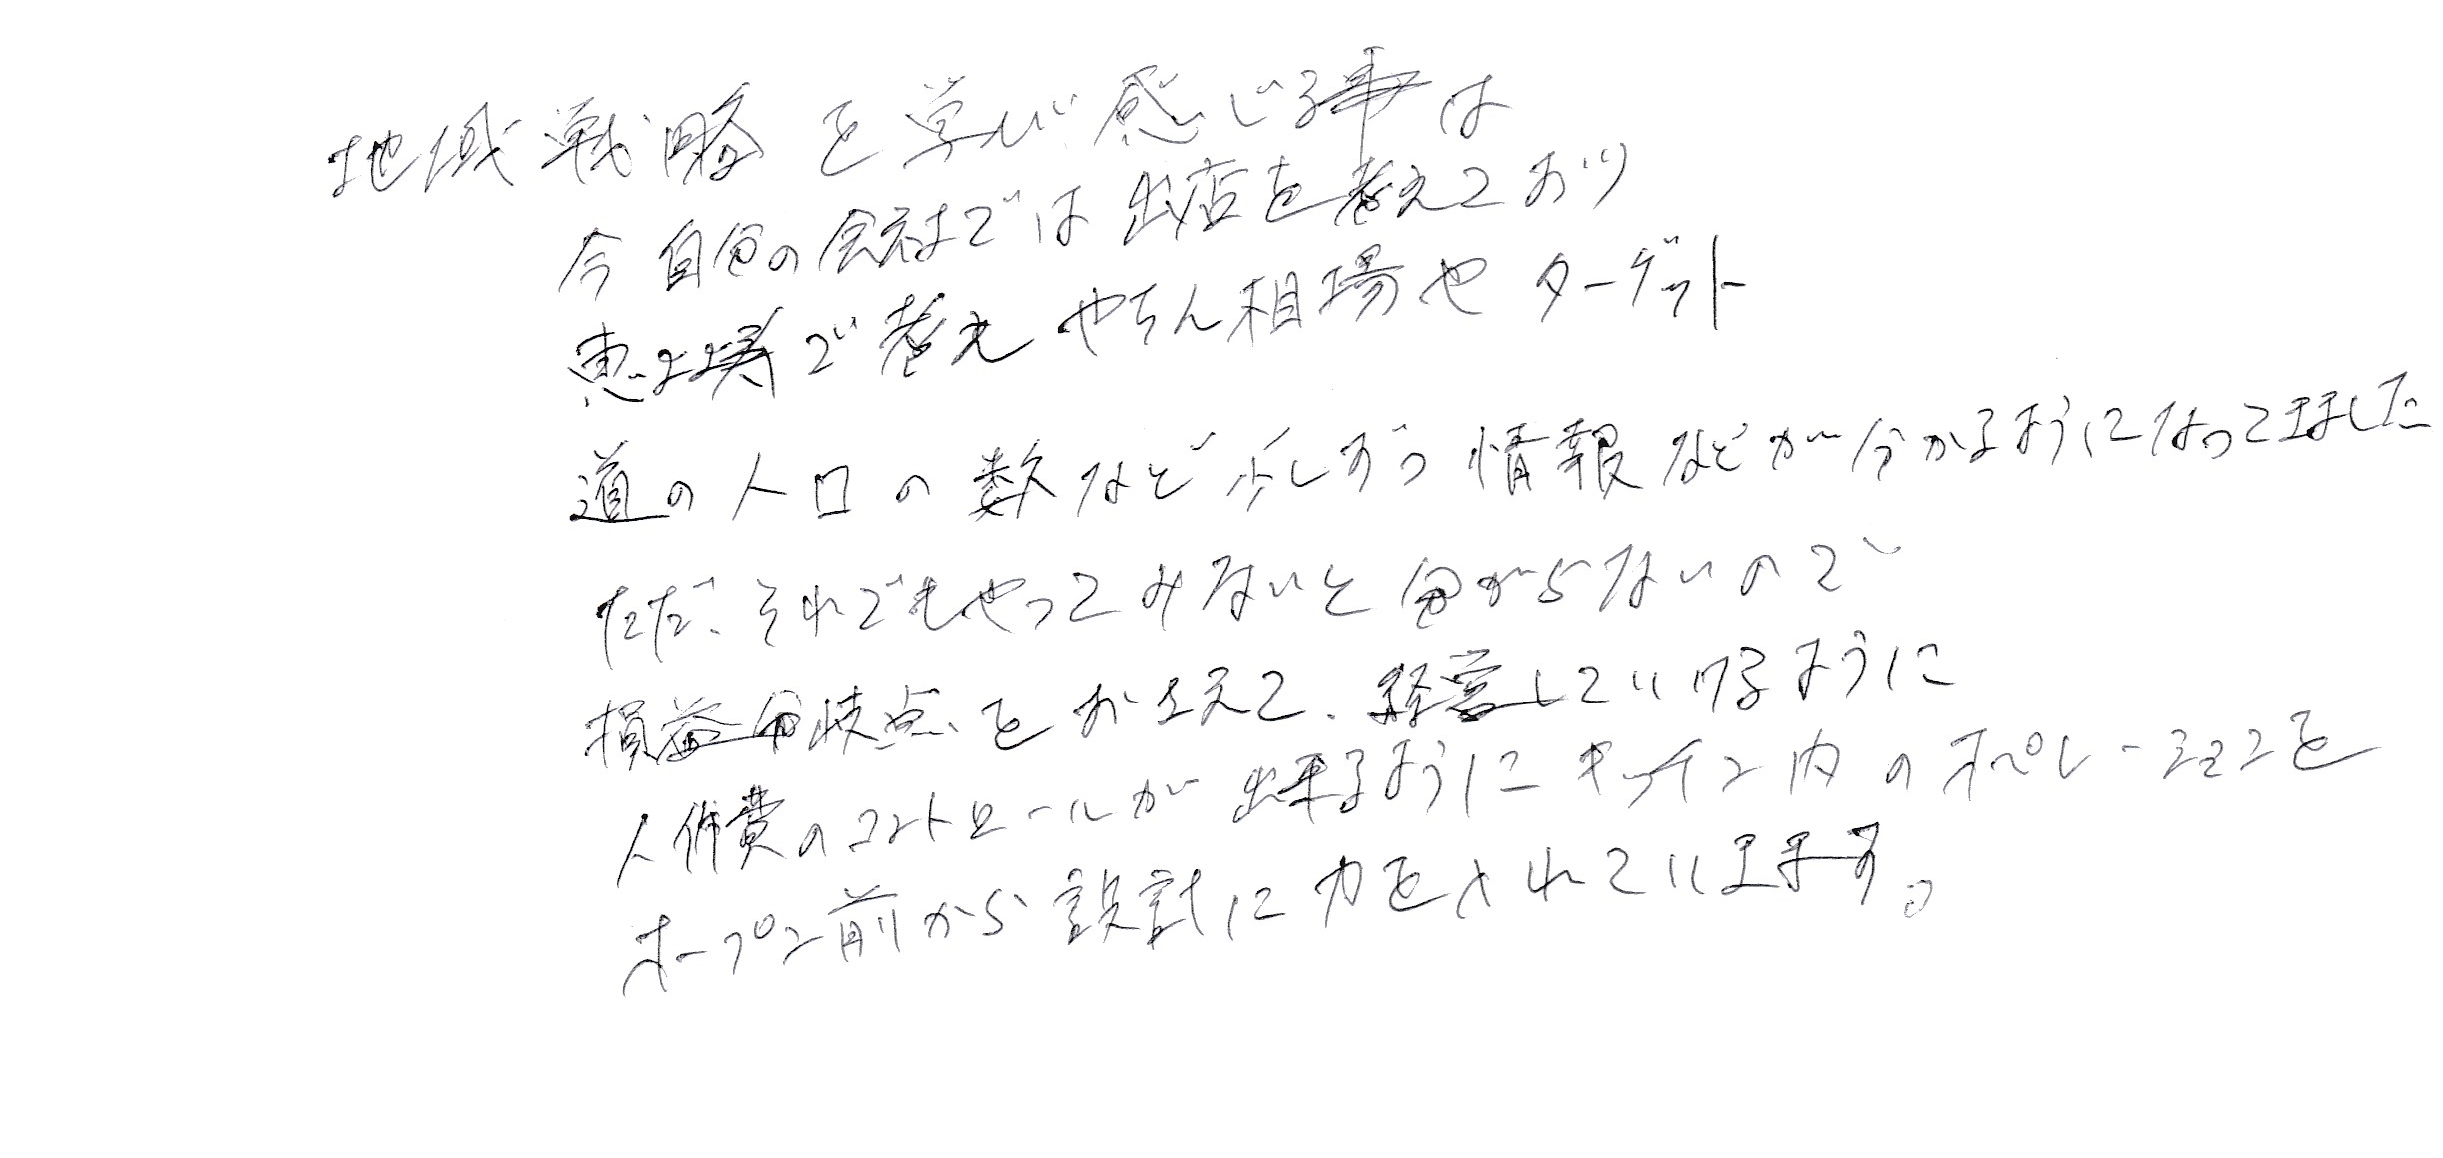 地域戦略を学び感じる事は
今自分の会社では出店を考えており
恵比寿で考えやちん相場やターゲット
道の人口の数など少しずつ情報などが分かるようになってました
ただ、それでもやってみないと分からないので
損益分岐点をおさえて、経営していけるように
人件費のコントロールが出来るようにキッチン内のオペレーションを
オープン前から設計に力を入れています。